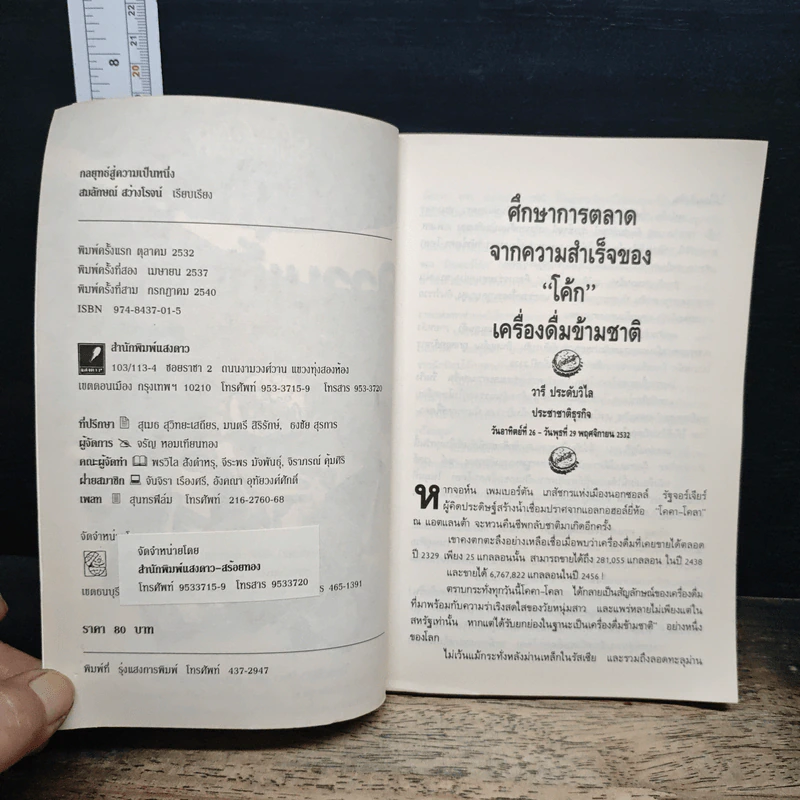 22
8
21
20
กลยุทธ์สู่ความเป็นหนึ่ง
สมลักษณ์ สว่างโรจน์ เรียบเรียง
พิมพ์ครั้งแรก ตุลาคม 2532
พิมพ์ครั้งที่สอง เมษายน 2537
พิมพ์ครั้งที่สาม กรกฎาคม 2540
ISBN 974-8437-01-5
สำนักพิมพ์แสงดาว
103/113-4 ซอยราชา 2 ถนนงามวงศ์วาน แขวงทุ่งสองห้อง
เขตดอนเมือง กรุงเทพฯ 10210 โทรศัพท์ 953-3715-9 โทรสาร 953-3720
ที่ปรึกษา สุเมธ สุวิทยะเสถียร, มนตรี สิริรักษ์, ธงชัย สุรการ
ผู้จัดการ จรัญ หอมเทียนทอง
คณะผู้จัดทำ พรวิไล สังดำหรุ, จีระพร มัจพันธุ์, จิราภรณ์ คุ้มศิริ
ฝ่ายสมาชิก จันจิรา เรืองศรี, อังคณา อุทัยวงศ์ศักดิ์
เพลท สุนทรฟิล์ม โทรศัพท์ 216-2760-68
จัดจำหน่าย
จัดจำหน่ายโดย
สำนักพิมพ์แสงดาว-สร้อยทอง
โทรศัพท์ 9533715-9 โทรสาร 9533720
เขตธนบุรี
465-1391
ราคา 80 บาท
พิมพ์ที่ รุ่งแสงการพิมพ์ โทรศัพท์ 437-2947
ศึกษาการตลาด
จากความสำเร็จของ
“โค้ก”
เครื่องดื่มข้ามชาติ
วารี ประดับวิไล
ประชาชาติธุรกิจ
วันอาทิตย์ที่ 26 - วันพุธที่ 29 พฤศจิกายน 2532
หากจอห์น เพมเบอร์ตัน เภสัชกรแห่งเมืองนอกซอลล์ รัฐจอร์เจียร์
ผู้คิดประดิษฐ์สร้างน้ำเชื่อมปราศจากแอลกอฮอล์ยี่ห้อ “โคคา-โคลา”
ณ แอตแลนต้า จะหวนคืนชีพกลับชาติมาเกิดอีกครั้ง
เขาคงตกตะลึงอย่างเหลือเชื่อเมื่อพบว่าเครื่องดื่มที่เคยขายได้ตลอด
ปี 2329 เพียง 25 แกลลอนนั้น สามารถขายได้ถึง 281,055 แกลลอน ในปี 2438
และขายได้ 6,767,822 แกลลอนในปี 2456 !
ตราบกระทั่งทุกวันนี้โคคา-โคลา ได้กลายเป็นสัญลักษณ์ของเครื่องดื่ม
ที่มาพร้อมกับความร่าเริงสดใสของวัยหนุ่มสาว และแพร่หลายไม่เพียงแต่ใน
สหรัฐเท่านั้น หากแต่ได้รับยกย่องในฐานะเป็นเครื่องดื่มข้ามชาติ” อย่างหนึ่ง
ของโลก
ไม่เว้นแม้กระทั่งหลังม่านเหล็กในรัสเซีย และรวมถึงลอดทะลุม่าน